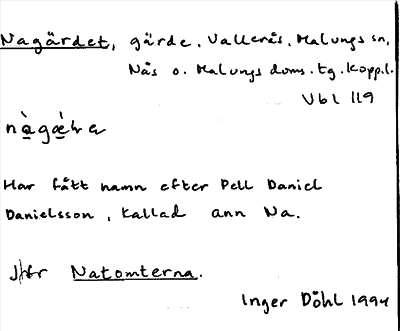 Nagärdet, gärde. Vallerås. Malungs sn,
Nås o. Malungs doms. tg. Kopp.l.
Vbl 119
Har fått namn efter Pell Daniel
Danielsson, kallad ann Na.
Jfr Natomterna.
Inger Döhl 1994